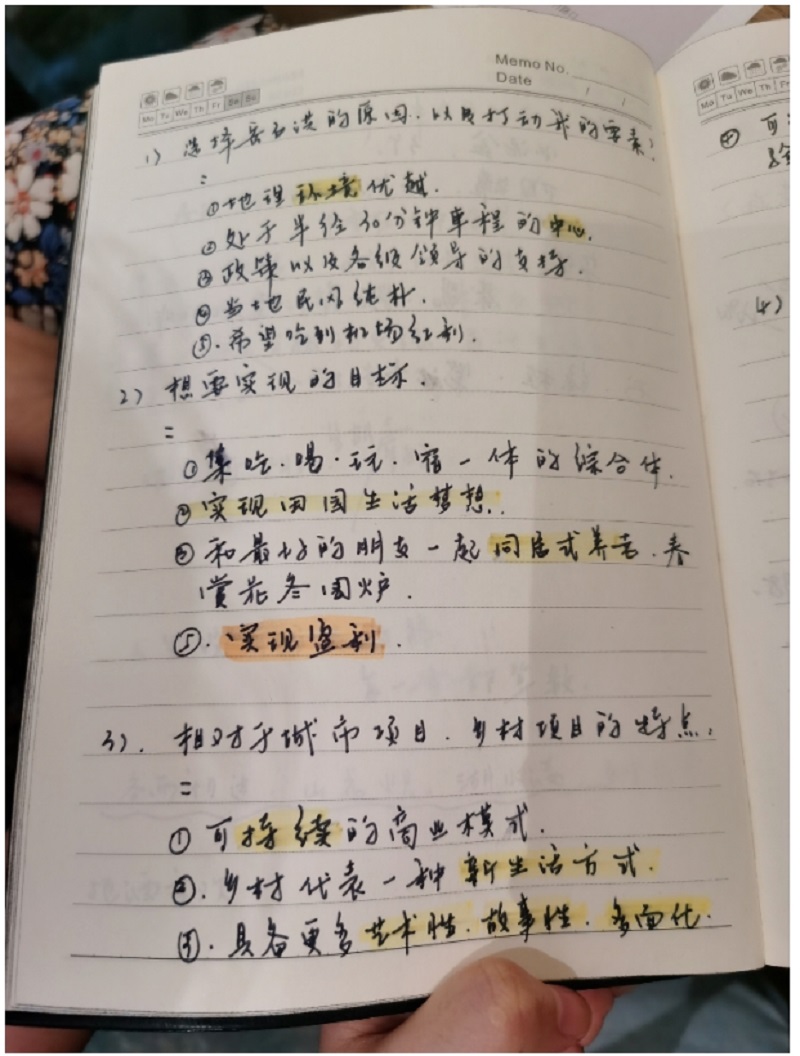 Memo No.
Date / /
Mo Tu We Th Fr Sa Su
1) 选择岳石洪的原因.以及打动我的要素:
:
①地理环境优越.
②处于半径30分钟车程的中心.
③政策以及各级领导的支持.
④当地民风纯朴.
⑤.希望吃到机场红利.
2) 想要实现的目标.
=
①集吃.喝.玩.宿一体的综合体.
②实现田园生活梦想.
③和最好的朋友一起同居式养老.春
赏花冬围炉.
⑤.实现盈利.
3).相对于城市项目.乡村项目的特点:
=
①可持续的商业模式.
②.乡村代表一种新生活方式.
③.具备更多艺术性.故事性.多面化.
Mo Tu We Th Fr
④ 可
4)